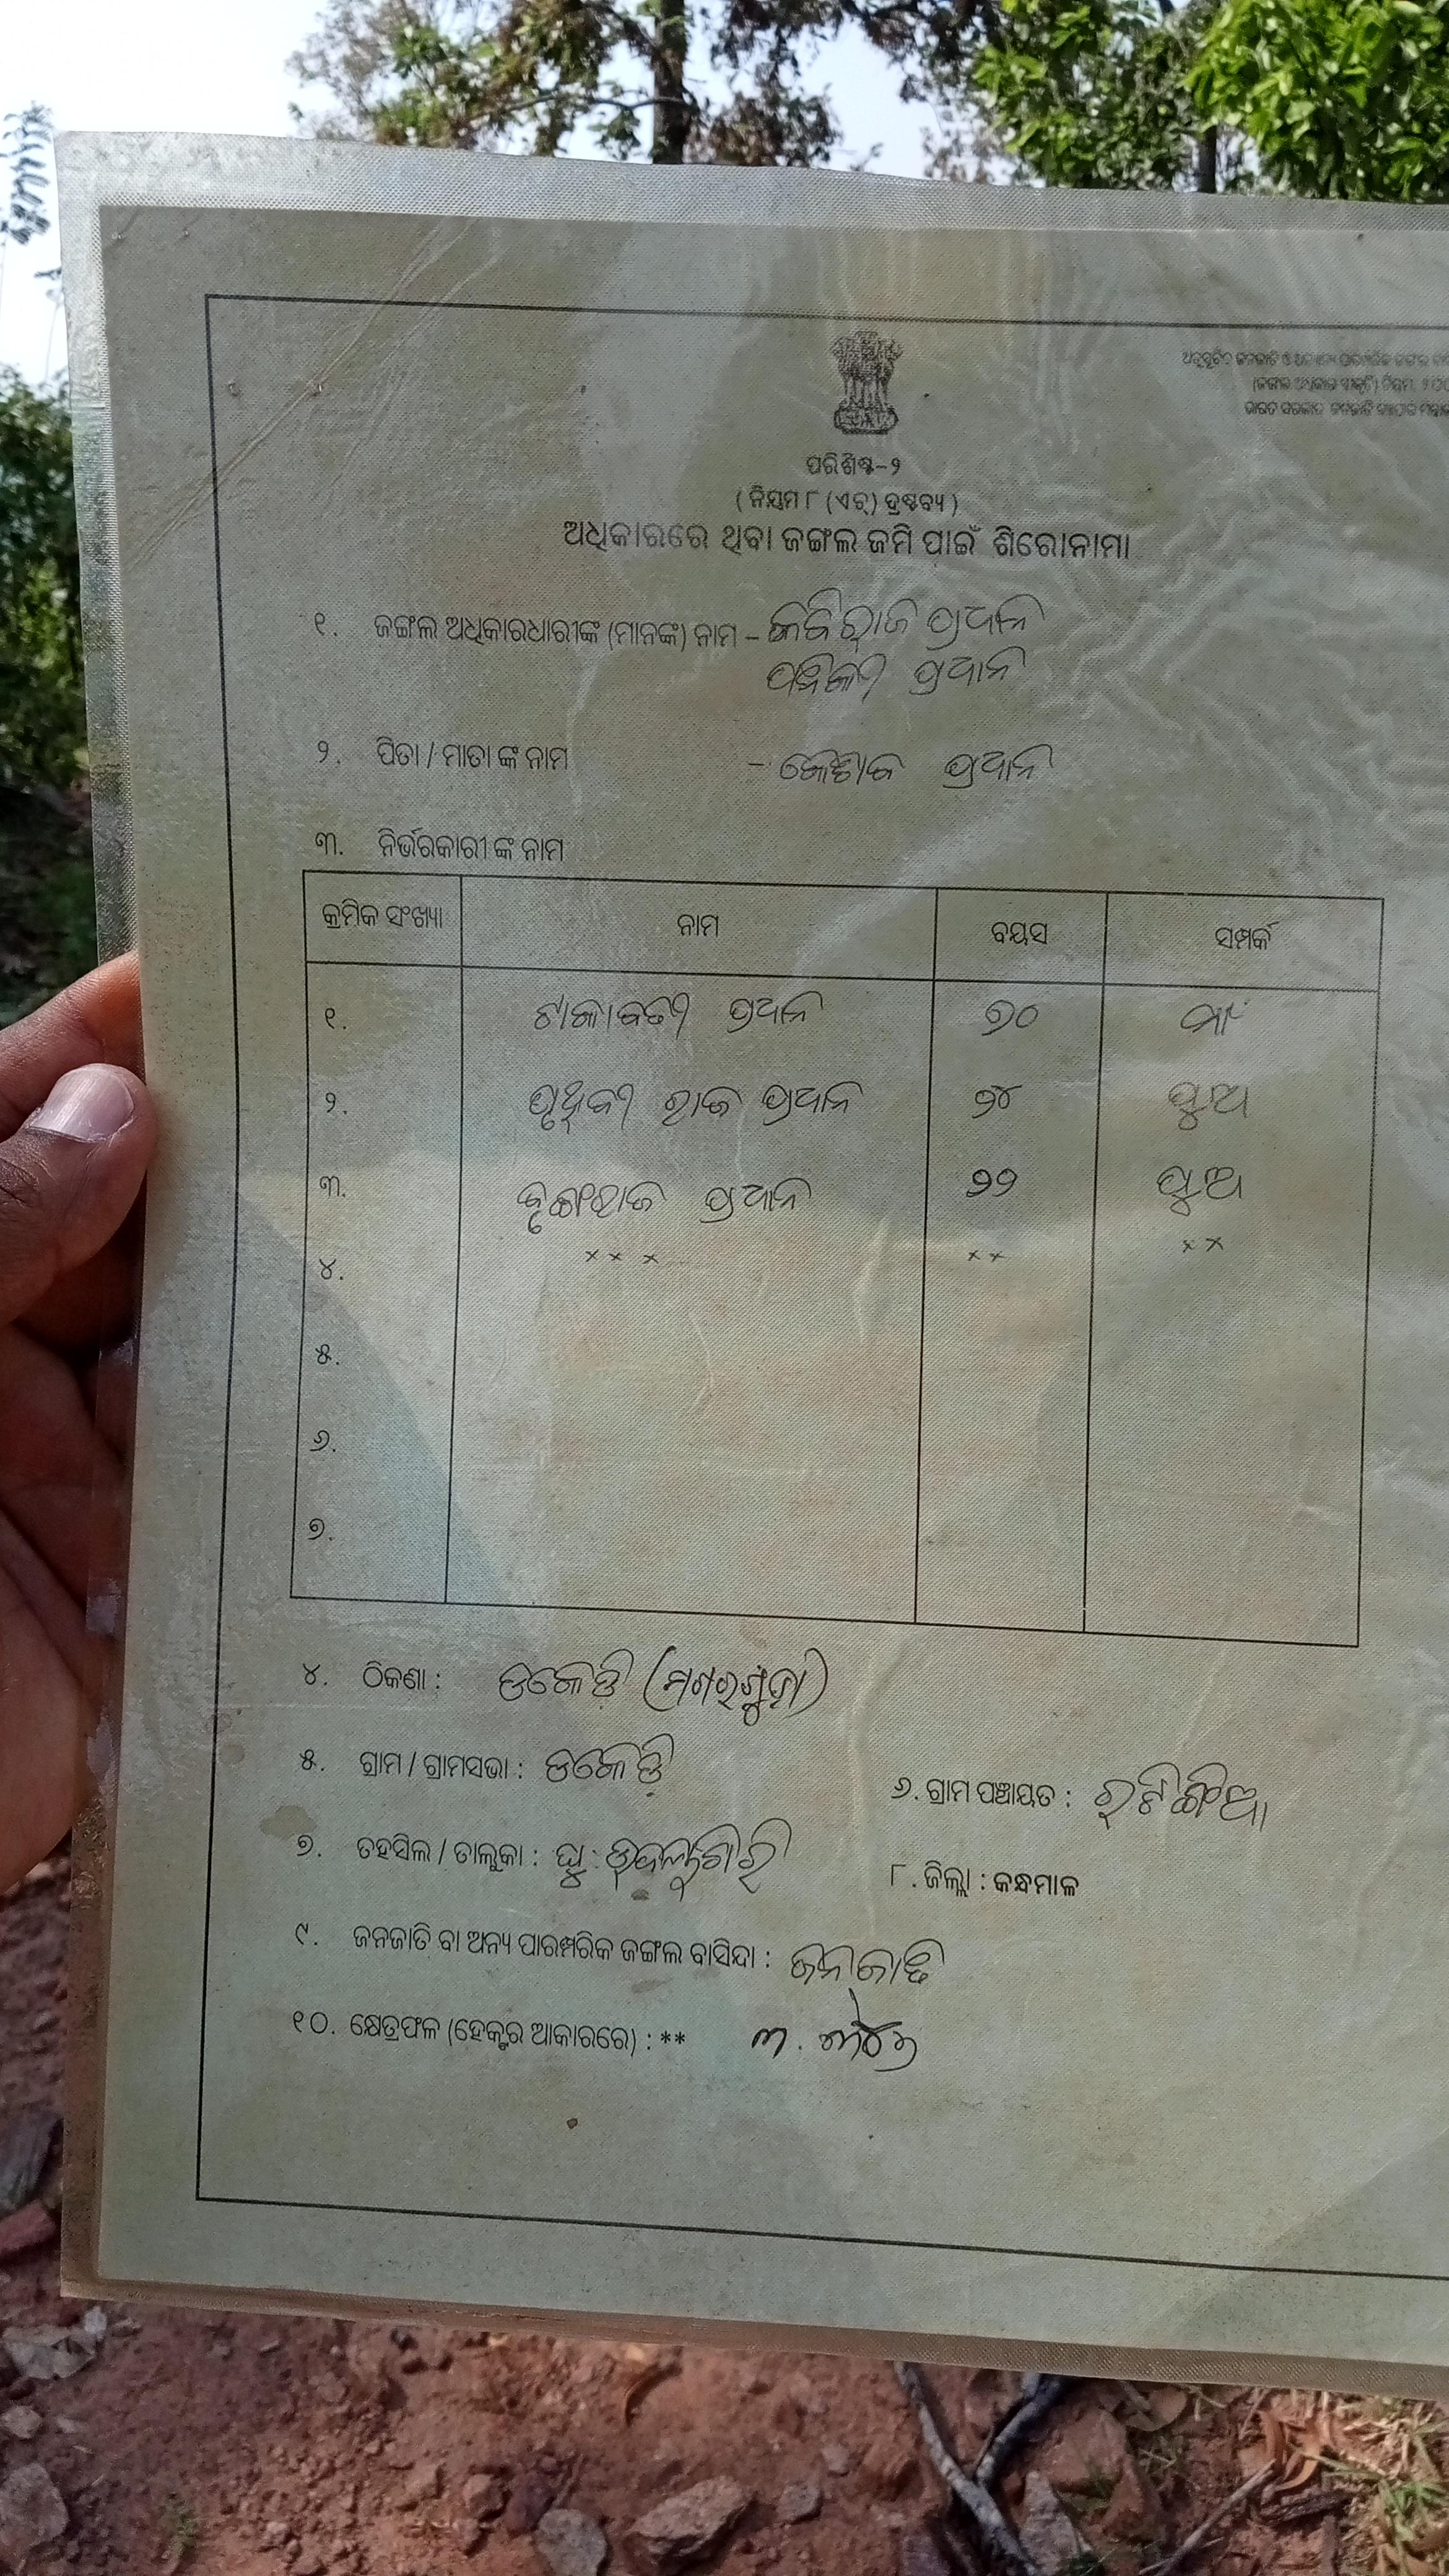 ଅନୁସୂଚିତ ଜନଜାତି ଓ ଅନ୍ୟାନ୍ୟ ପାରମ୍ପରିକ ଜଙ୍ଗଲ
(ଜଙ୍ଗଲ ଅଧିକାର ସ୍ୱୀକୃତି) ନିୟମ, ୨୦୦
ଭାରତ ସରକାର ଜନଜାତି ବ୍ୟାପାର
ପରିଶିଷ୍ଟ-୨
( ନିୟମ ୮ (ଏଚ୍) ଦ୍ରଷ୍ଟବ୍ୟ )
ଅଧିକାରରେ ଥିବା ଜଙ୍ଗଲ ଜମି ପାଇଁ ଶିରୋନାମା
୧. ଜଙ୍ଗଲ ଅଧିକାରଧାରୀଙ୍କ (ମାନଙ୍କ) ନାମ – କବିରାଜ ପ୍ରଧାନ
ପ୍ରଧାନ
୨. ପିତା / ମାତା ଙ୍କ ନାମ – ପ୍ରଧାନ
୩. ନିର୍ଭରକାରୀ ଙ୍କ ନାମ
କ୍ରମିକ ସଂଖ୍ୟା ନାମ ବୟସ ସମ୍ପର୍କ
୧. ଟୀକାବତୀ ପ୍ରଧାନ ୭୦ ମାଁ
୨. ପୃଥିବୀ ରାଜ ପ୍ରଧାନ ୨୪ ପୁଅ
୩. ପ୍ରଧାନ ୨୨ ପୁଅ
୪. × × × × × × ×
୫.
୬.
୭.
୪. ଠିକଣା : ଡକେଡ଼ି
୫. ଗ୍ରାମ / ଗ୍ରାମସଭା : ଡକେଡ଼ି
୬. ଗ୍ରାମ ପଞ୍ଚାୟତ : ରଟିଙ୍ଗିଆ
୭. ତହସିଲ / ତାଲୁକା : ଘୁ: ଉଦୟଗିରି
୮. ଜିଲ୍ଲା : କନ୍ଧମାଳ
୯. ଜନଜାତି ବା ଅନ୍ୟ ପାରମ୍ପରିକ ଜଙ୍ଗଲ ବାସିନ୍ଦା : ଜନଜାତି
୧୦. କ୍ଷେତ୍ରଫଳ (ହେକ୍ଟର ଆକାରରେ) : **